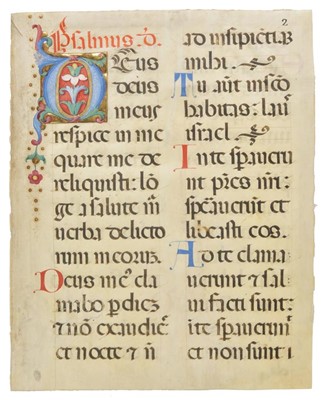 Psalmus .D.
Deus
deus
meus
respice in me
quare me de
reliquisti: lō
ge a salute m
uerba delicto
rum meoꝝ.
Deus me⁹ cla
mabo p diē
⁊ nō exaudies
et nocte et n
2
ad insipiētiā
mihi.
Tu aūt in scō
habitas: laus
israel.
In te sperauer
unt pr̄es nr̄i:
sperauerūt et
liberasti eos.
Ad te clama
uerunt ⁊ sal
ui facti sunt:
ī te sperauerūt
et non sunt